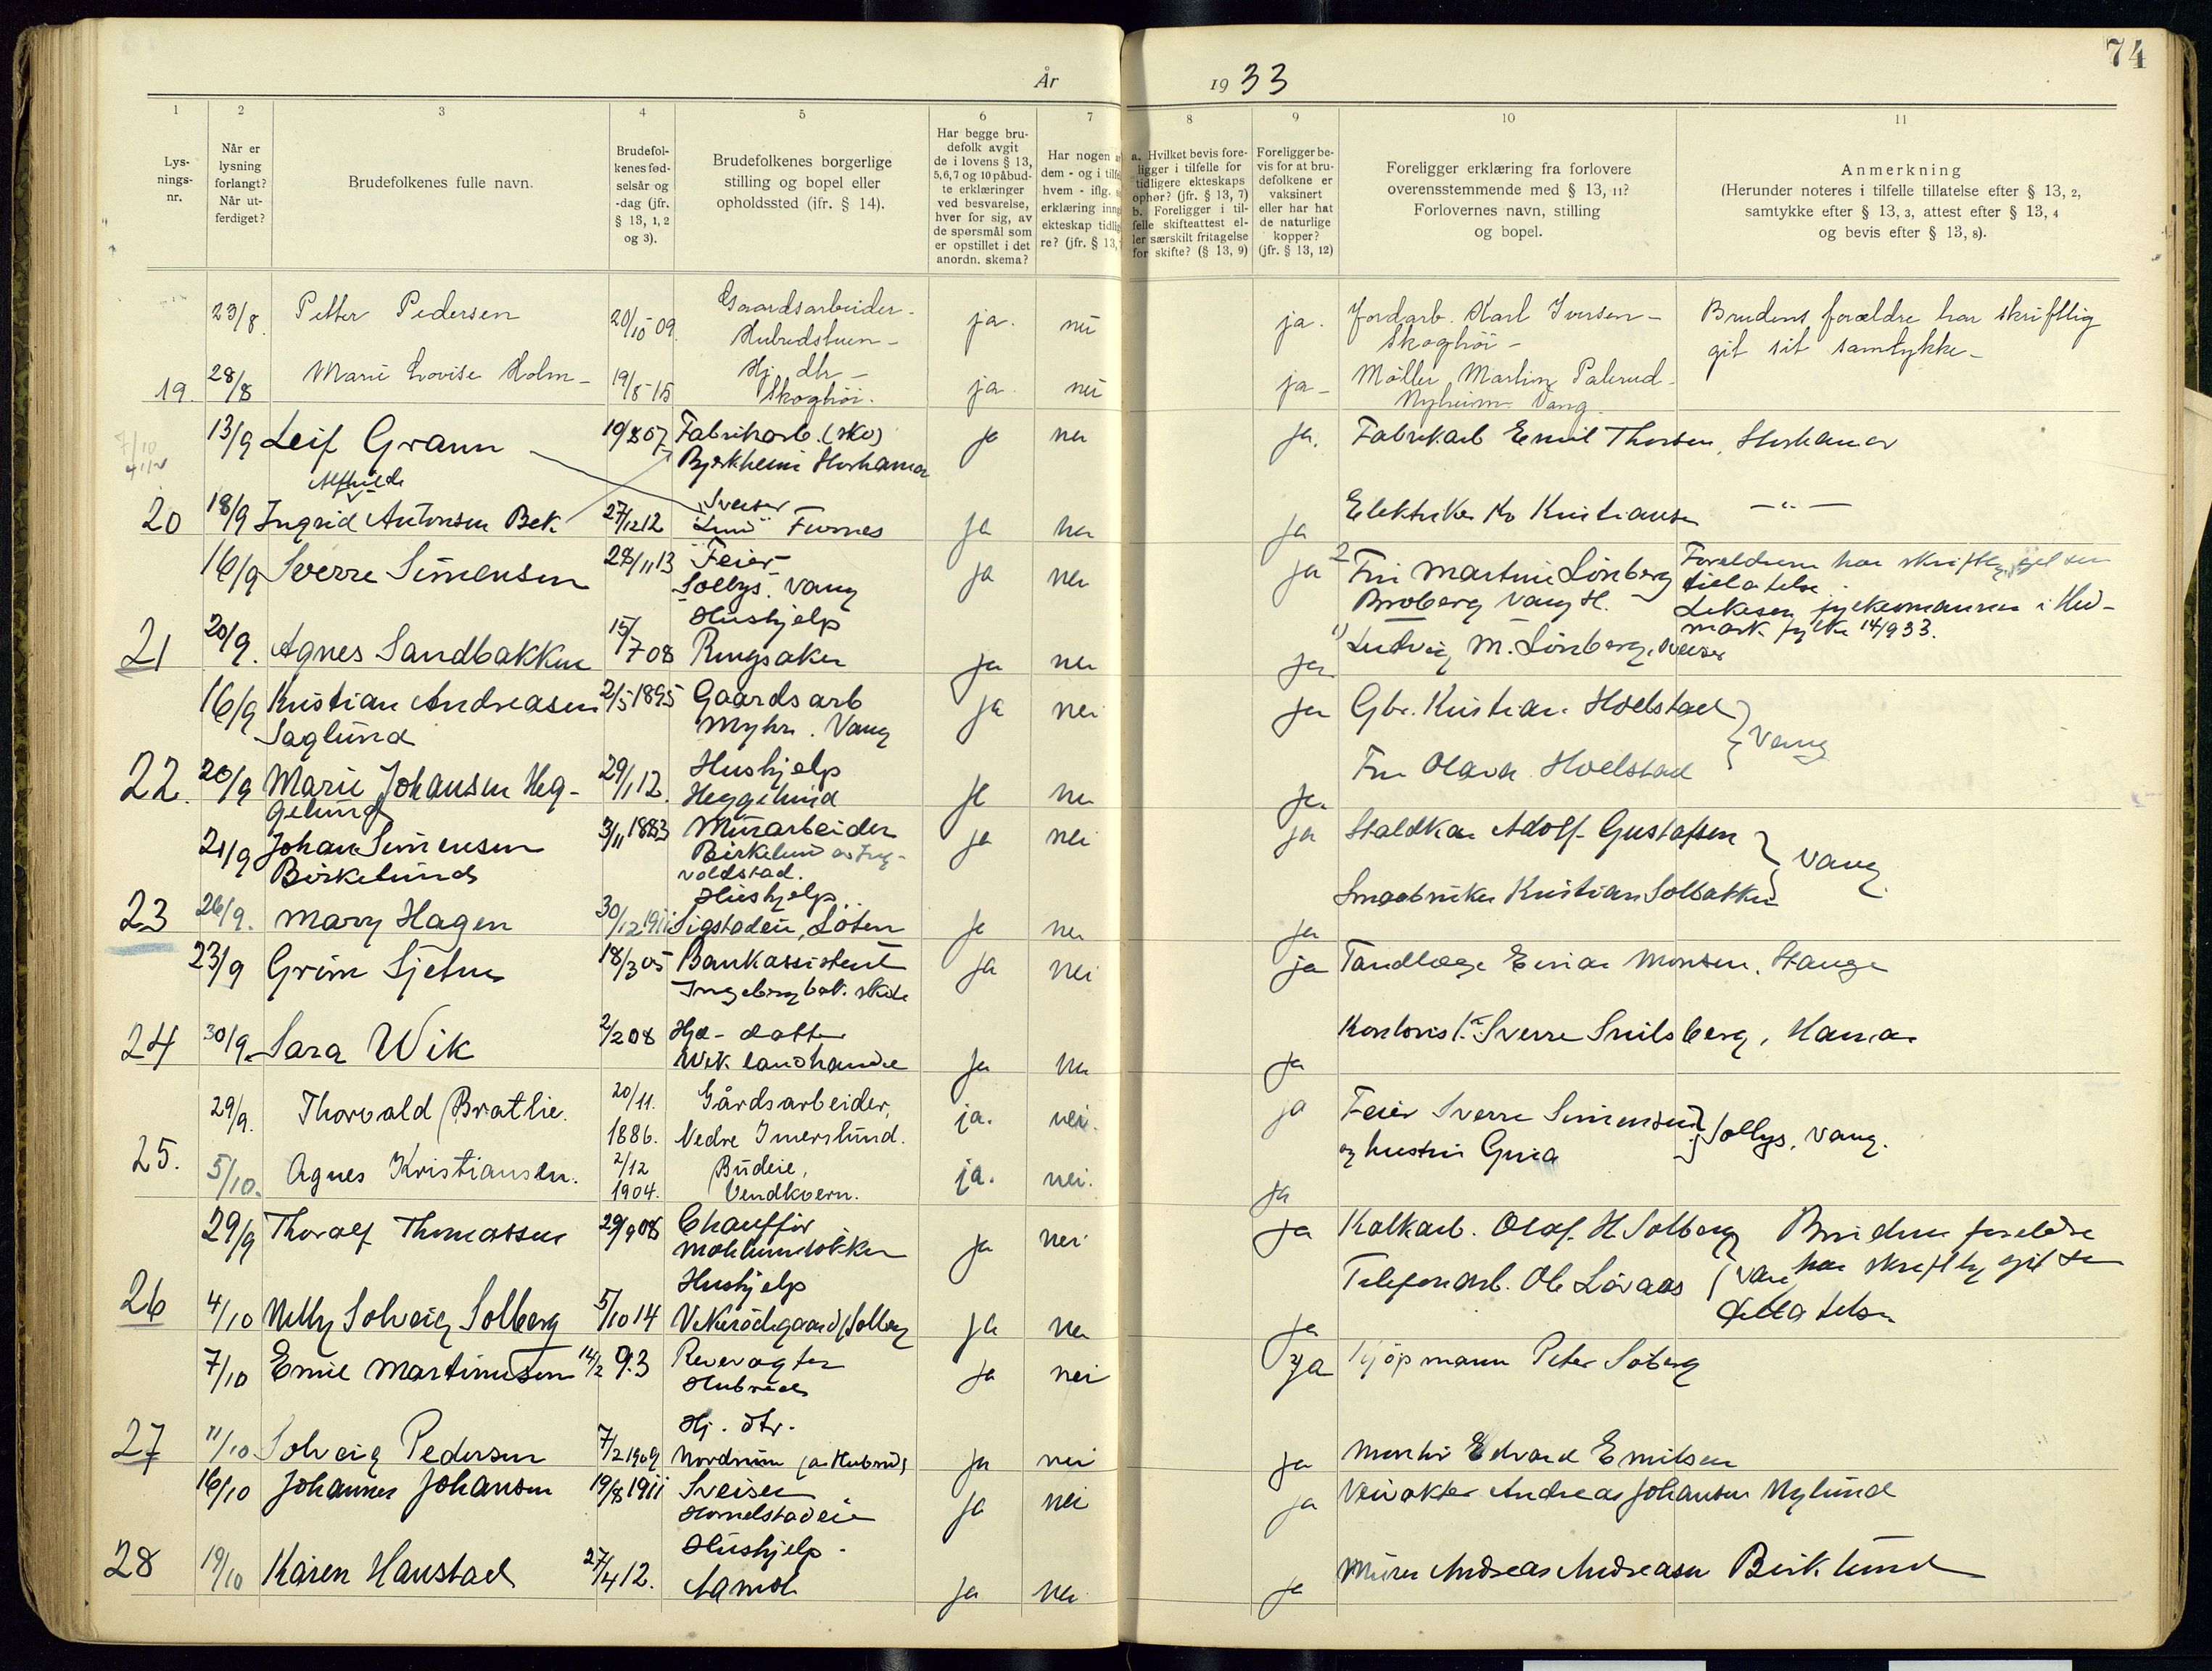 År 1933
74
1 2 3 4 5 6 7 8 9 10 11
Lys-
nings-
nr.
Når er
lysning
forlangt?
Når ut-
ferdiget?
Brudefolkenes fulle navn.
Brudefol-
kenes fød-
selsår og
-dag (jfr.
§ 13, 1, 2
og 3).
Brudefolkenes borgerlige
stilling og bopel eller
opholdssted (ifr. § 14).
Har begge bru-
defolk avgit
de i lovens § 13,
5, 6, 7 og 10 påbud-
te erklæringer
ved besvarelse,
hver for sig, av
de spørsmål som
er opstillet i det
anordn. skema?
Har nogen
dem - og i tilfe
hvem - iflg.
erklæring inng
ekteskap tidlig
re? (jfr. § 13,
a. Hvilket bevis fore-
ligger i tilfelle for
tidligere ekteskaps
ophør? (jfr. § 13, 7)
b. Foreligger i til-
felle skifteattest el-
ler særskilt fritagelse
for skifte? (§ 13, 9)
Foreligger be-
vis for at bru-
defolkene er
vaksinert
eller har hat
de naturlige
kopper?
(jfr. § 13, 12)
Foreligger erklæring fra forlovere
overensstemmende med § 13, 11?
Forlovernes navn, stilling
og bopel.
Anmerkning
(Herunder noteres i tilfelle tillatelse efter § 13, 2,
samtykke efter § 13, 3, attest efter § 13, 4
og bevis efter § 13, 8).
23/8. Petter Pedersen 20/10 09. Gaardsarbeider- ja. nei ja. Jordarb. Karl Iversen- Brudens forældre har skriftlig
Hubredstuen- Skoghöi- git sit samtykke-
19. 28/8 Marie Lovise Holm- 19/5-15 Hj. dtr- ja nei ja- Möller Martin Palerud-
Skoghöi. Nyheim Vang.
13/9 Leif Grann 19/8 07 Fabrikarb. (sko) ja nei ja. Fabrikarb Emil Thorsen, Storhamar
Bjerkheim Storhamar
Alfhilde
20 18/9 Ingrid Antonsen Bek 27/12 12 Sveiser ja nei ja Elektriker Kr Kristiansen -"-
Lund Furnes
16/9 Sverre Simensen 28/11 13 Feier ja nei ja 2 Fru Martine Lönberg Foreldrene har skriftlig git sin
Sollys. Vang Broberg Vang H. tillatelse.
Hushjelp fylkesmannen i Hed-
21 20/9. Agnes Sandbakken 15/7 08 Ringsaker ja nei ja 1) Ludvig M. Lönberg, sveiser mark fylke 14/9 33.
16/9 Kristian Andreasen 2/5 1895 Gaardsarb ja nei ja Gbr. Kristian Hoelstad
Saglund Myhr. Vang Vang
22. 20/9 Marie Johansen Heg- 29/1 12. Hushjelp ja nei ja. Fru Olava Hoelstad
gelund Heggelund
21/9 Johan Simensen 3/11 1883 Murarbeider ja nei ja Staldkar Adolf Gustafsen
Birkelund Birkelund av Ing-
voldstad. Vang
Hushjelp
23 26/9. Mary Hagen 30/12 1911 Sigstadeie, Löten ja nei ja Smaabruker Kristian Solbakken
23/9 Grim Sjetne 18/3 05 Bankassistent ja nei ja Tandlæge Einar Monsen, Stange
Ingeberg skole
24 30/9. Sara Wik 2/2 08 Hje-datter ja nei ja Kontorist Sverre Smilsberg, Hamar
Wik landhandel
29/9. Thorvald Bratlie. 20/11. 1886. Gårdsarbeider, ja. nei. ja Feier Sverre Simensen
Nedre Imerslund. og hustru Guia Sollys, Vang.
25. 5/10. Agnes Kristiansen. 2/12 1904. Budeie, ja. nei. ja
Vendkvern.
29/9 Thoralf Thomassen 29/9 08 Chauffør ja nei ja Kalkarb. Olaf H Solberg Brudens foreldre
Hushjelp har skriftlig git sin
26 4/10 Nelly Solveig Solberg 5/10 14 Solberg ja nei ja Telefonarb. Ole Lövaas Vang tillatelse
7/10 Emil Martinussen 14/2 93 Revevogter ja nei ja Kjöpmann Peter Soberg
Hubred
Hj. dtr.
27 11/10 Solveig Pedersen 7/2 1909 Nordrum på Hubred ja nei ja Montör Edvard Emilsen
16/10 Johannes Johansen 19/8 1911 Sveiser ja nei ja Veivokter Andreas Johansen Nylund
Homelstadeie
Hushjelp-
28 19/10 Karen Hanstad 27/4 12. Aamot ja nei ja Murer Andreas Andreasen Birklund